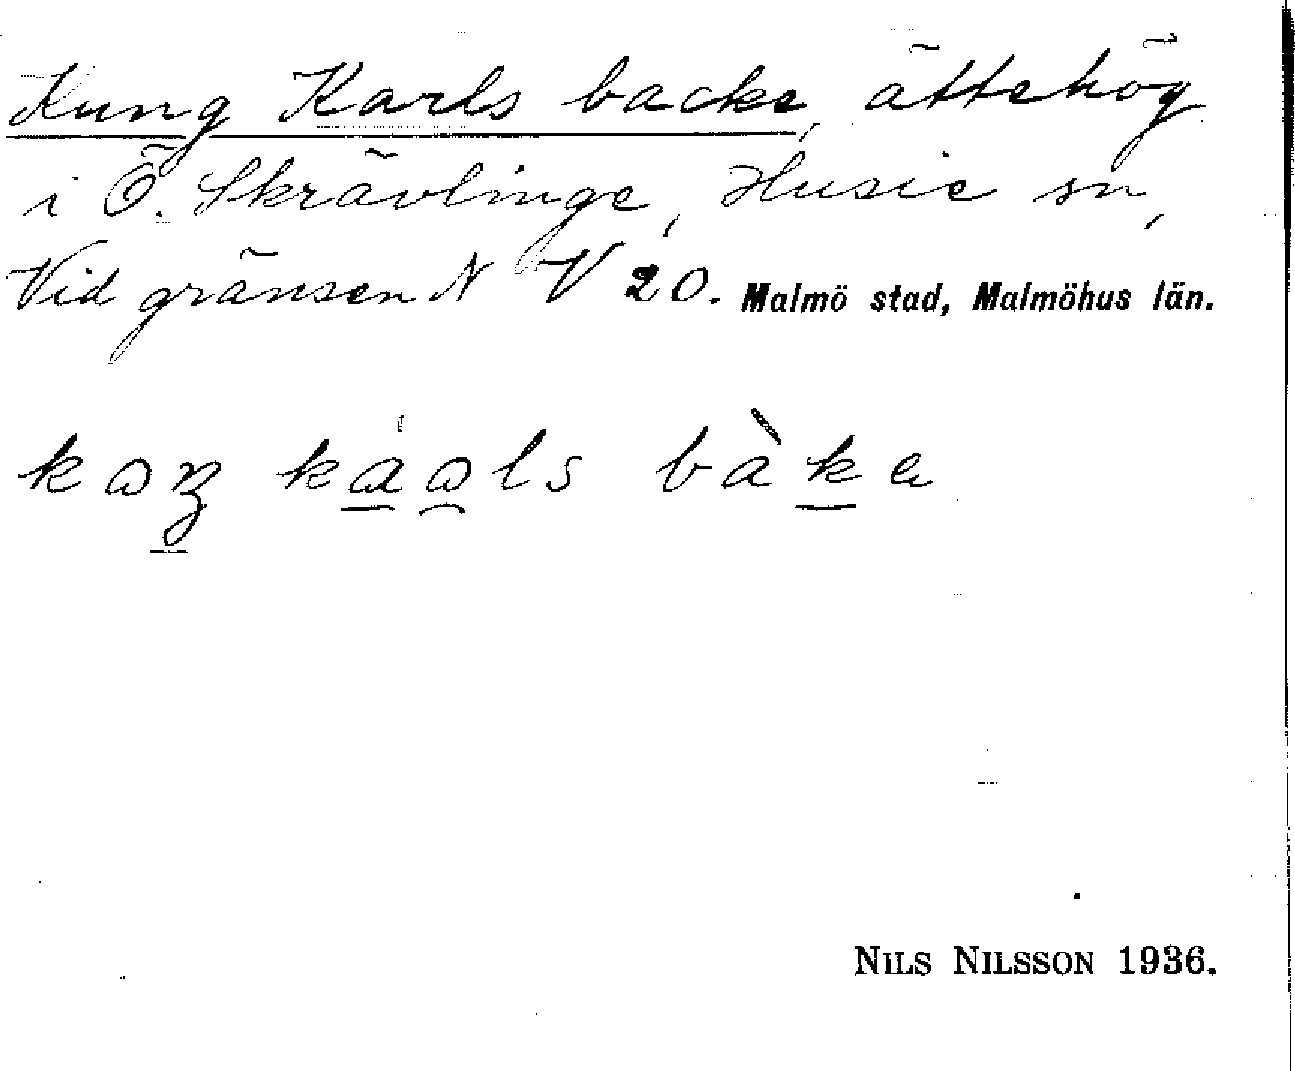 Kung Karls backe, ättehög
i Ö. Skrävlinge, Husie sn,
Vid gränsen N V 20. Malmö stad, Malmöhus län.
bàke
NILS NILSSON 1936.